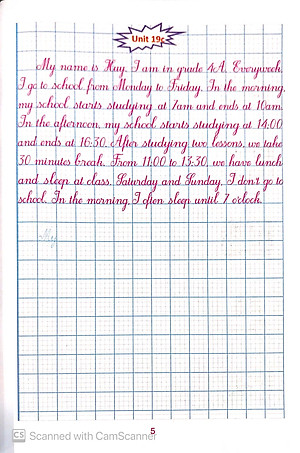 Unit 19c
My name is Huy. I am in grade 4A. Everyweek,
I go to school from Monday to Friday. In the morning,
my school starts studying at 7am and ends at 10am.
In the afternoon, my school starts studying at 14:00
and ends at 16:30. After studying two lessons, we take
30 minutes break. From 11:00 to 13:30, we have lunch
and sleep at class. Saturday and Sunday, I don't go to
school. In the morning, I often sleep until 7 o'clock.
5
CS Scanned with CamScanner